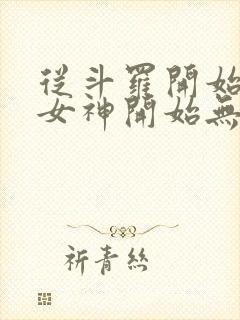 從斗羅開始
女神開始無
祈青絲